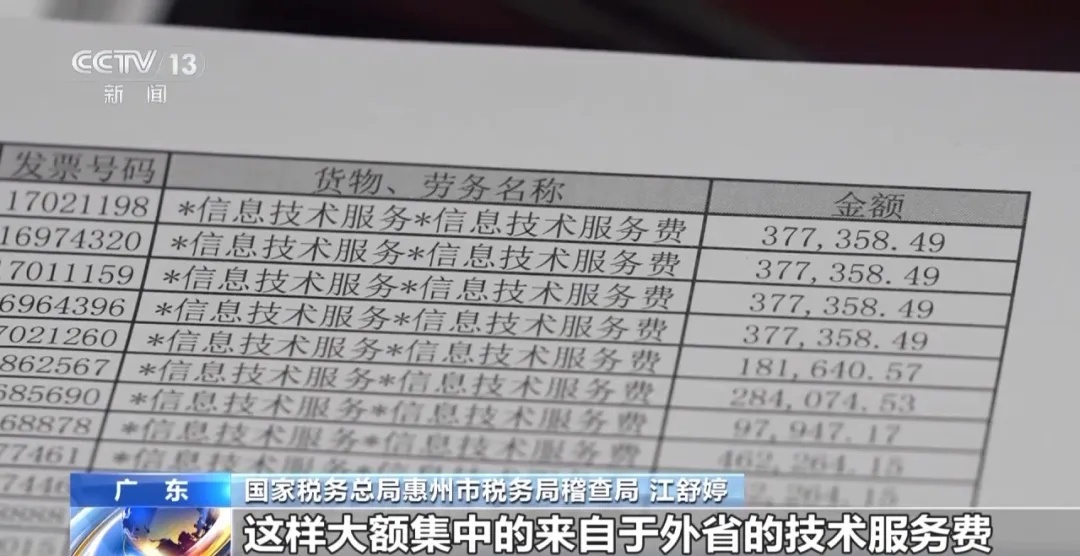 CCTV 13
新闻
发票号码 货物、劳务名称 金额
17021198 *信息技术服务*信息技术服务费 377,358.49
16974320 *信息技术服务*信息技术服务费 377,358.49
17011159 *信息技术服务*信息技术服务费 377,358.49
6964396 *信息技术服务*信息技术服务费 377,358.49
7021260 *信息技术服务*信息技术服务费 181,640.57
862567 *信息技术服务*信息技术服务费 284,074.53
685690 *信息技术服务*信息技术服务费 97,947.17
68878 *信息技术服务*信息技术服务费 462,264.15
77461 *信息技术服务
广东
国家税务总局惠州市税务局稽查局 江舒婷
这样大额集中的来自于外省的技术服务费